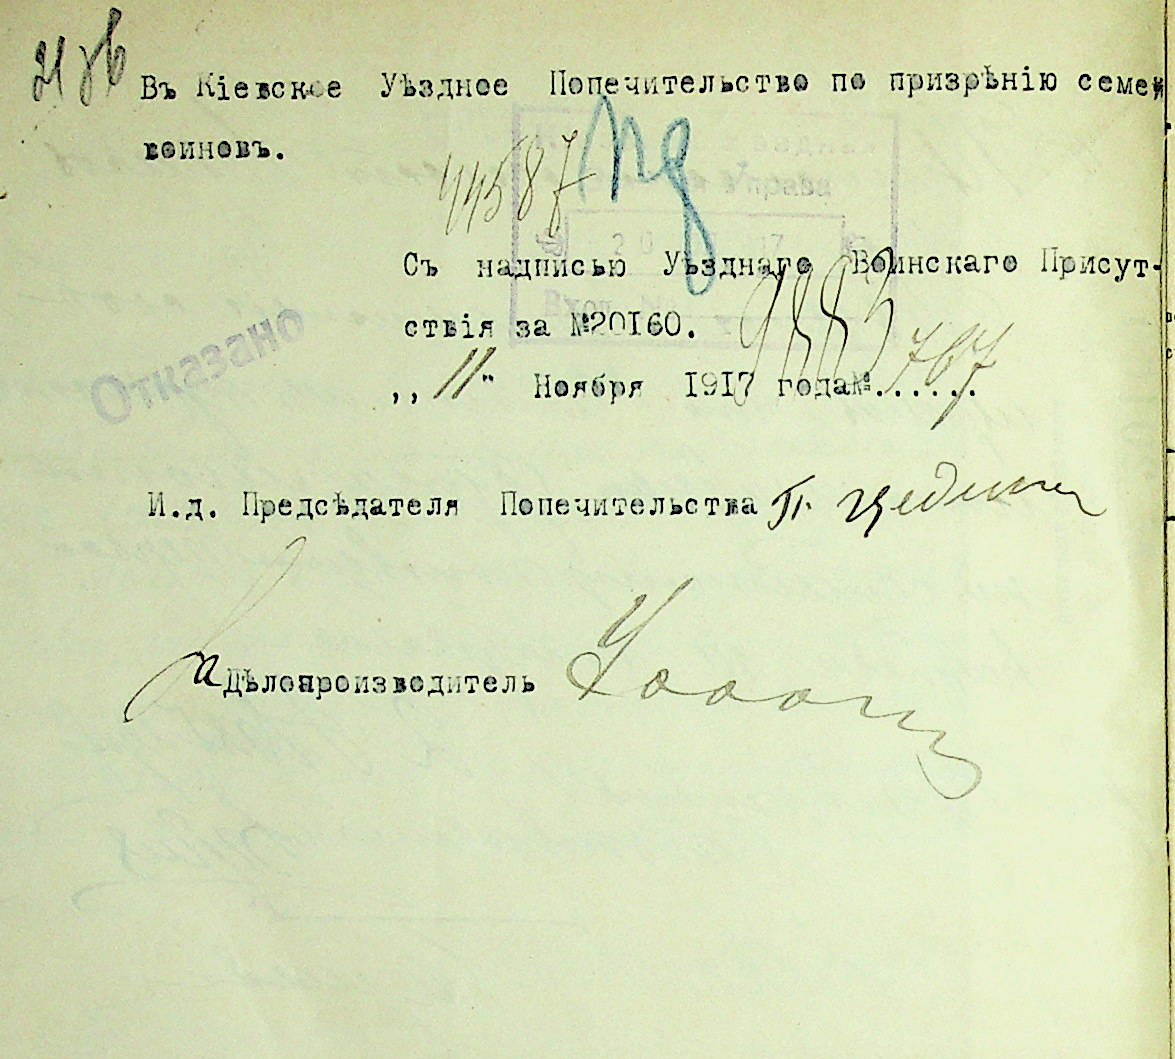 Въ Кіевское Уѣздное Попечительство по призрѣнію семей
воиновъ.
44587
Управа
20
Вход. №
Съ надписью Уѣзднаго Воинскаго Присут-
ствія за №20160.
Отказано
,,11" Ноября 1917 года№...... 767
И.д. Предсѣдателя Попечительства
За Дѣлопроизводитель